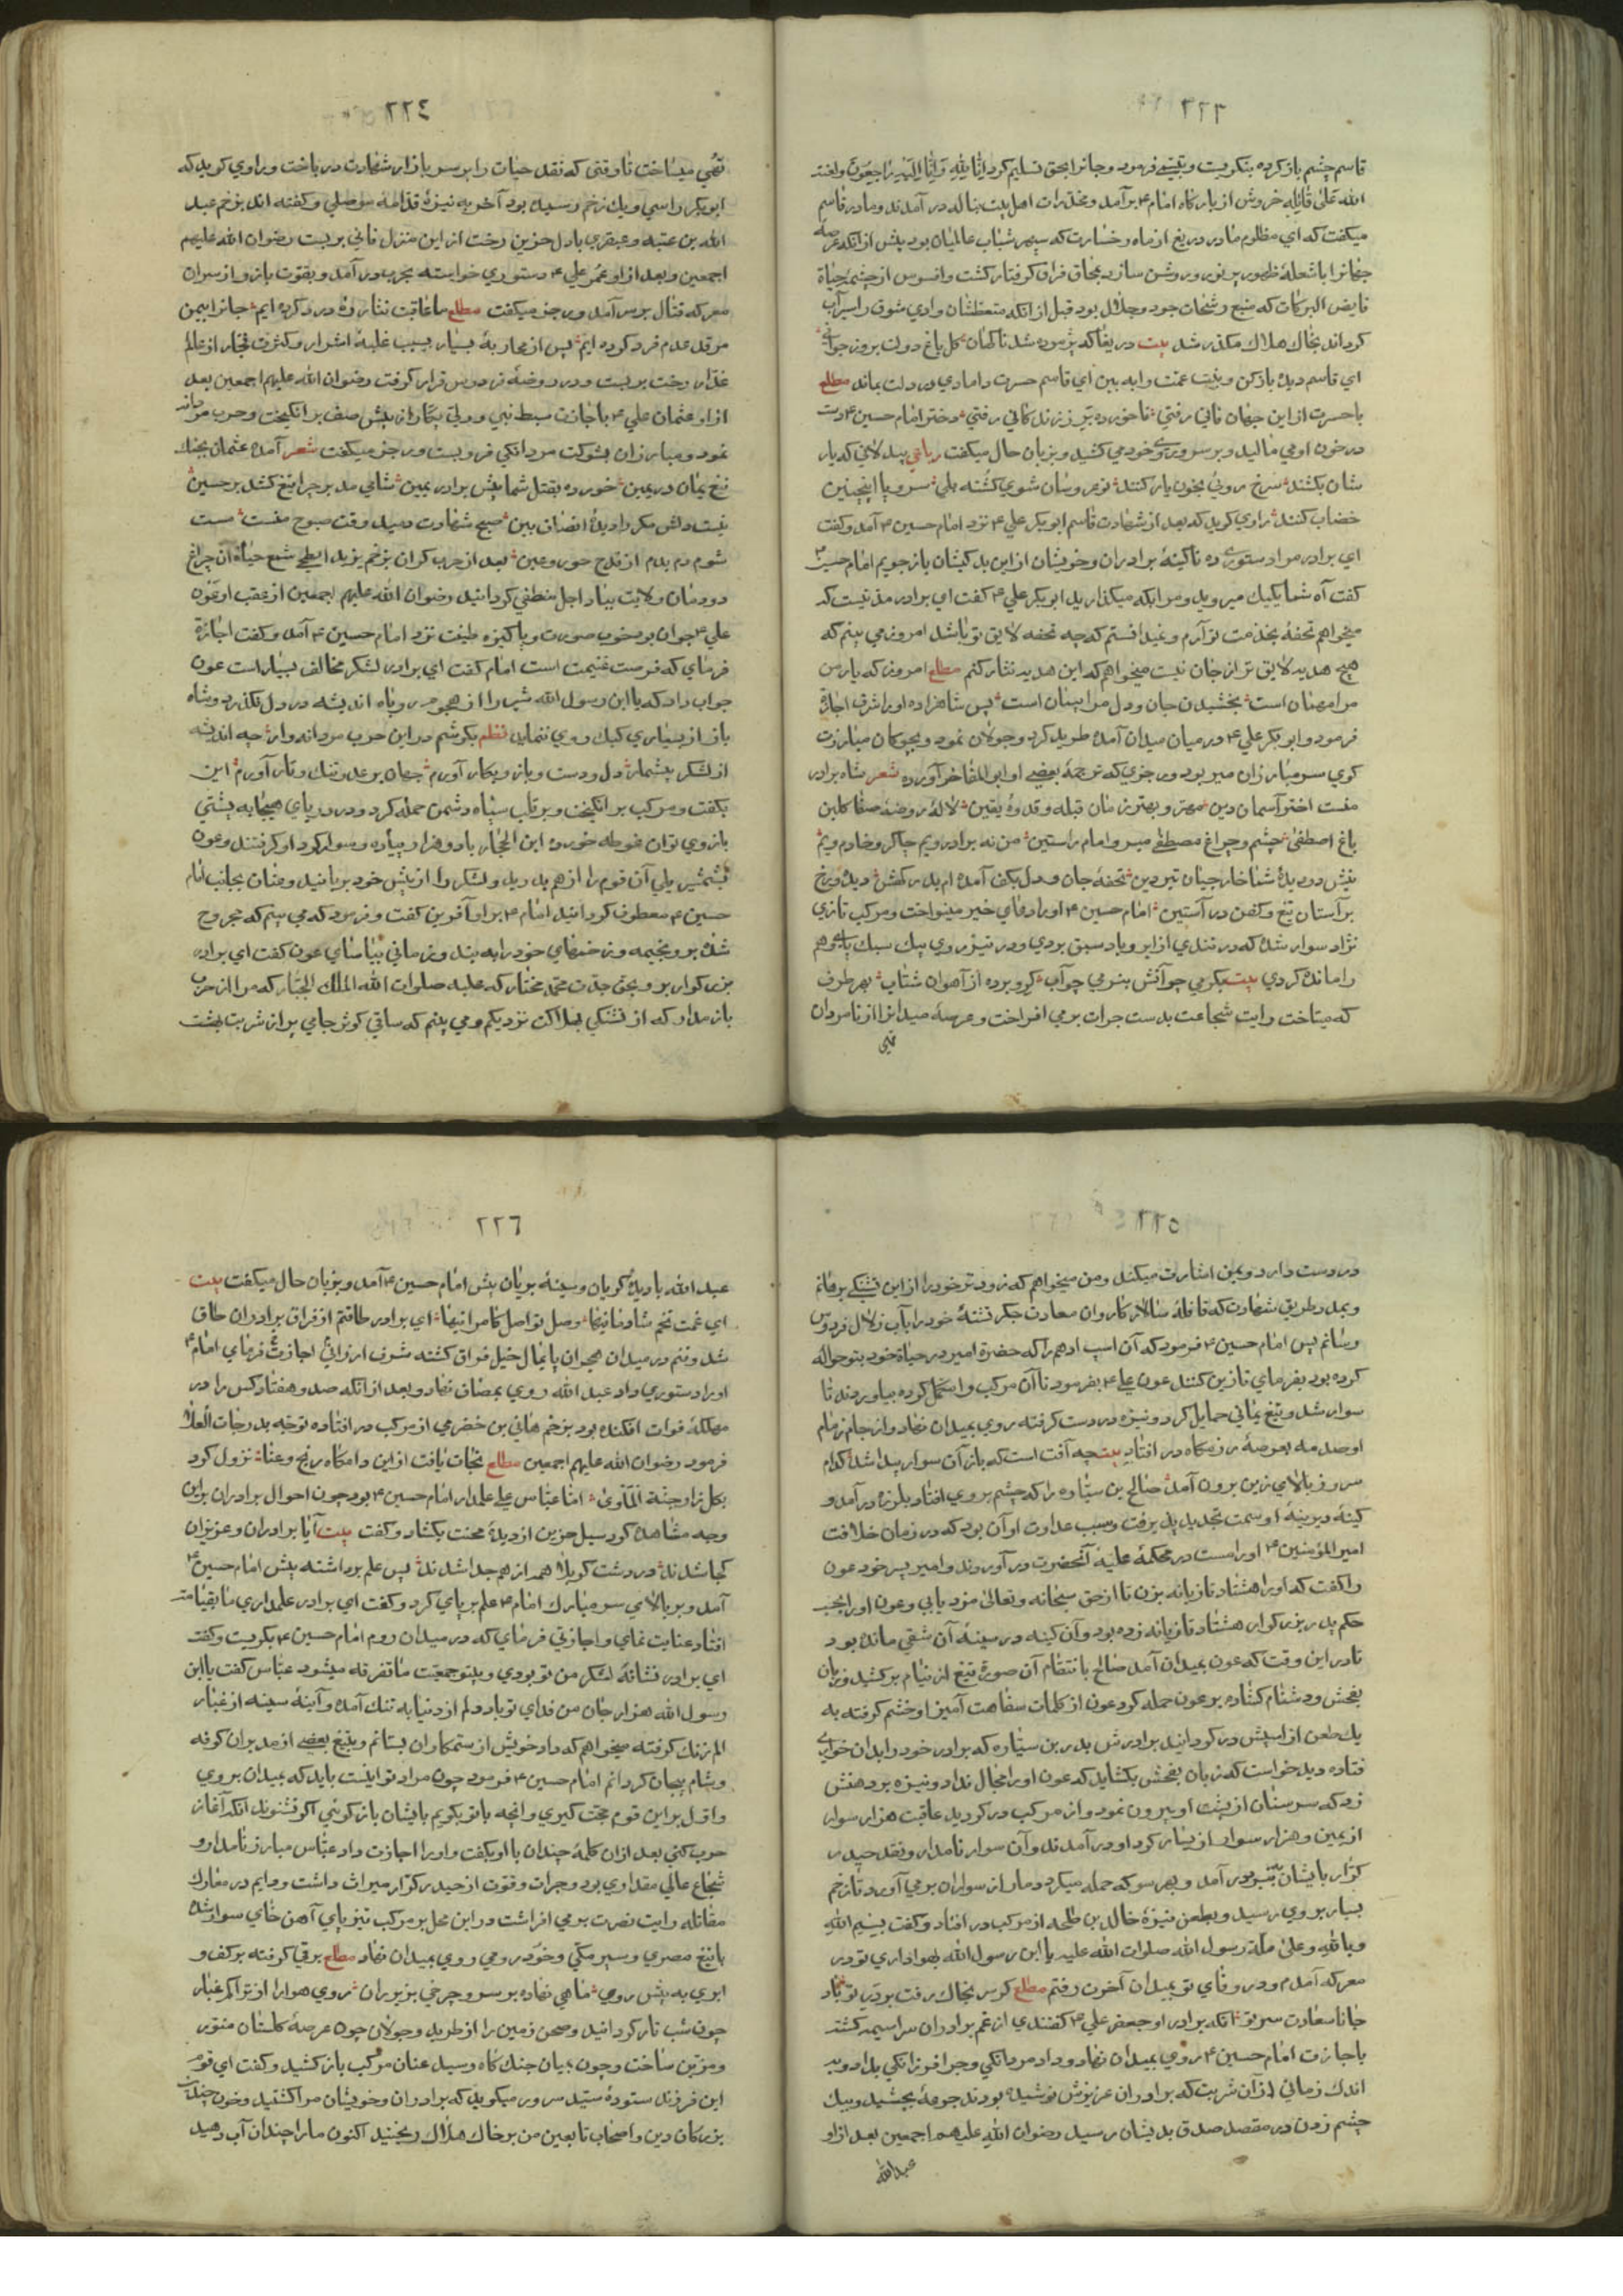 ٢٢٣
قاسم چشم باز کرده بنکریست و تبسّمی فرمود و جانرا بحق تسلیم کرد اِنّا لِلّهِ وَاِنّا اِلَیهِ رَاجِعُونَ و لعنة
الله عَلیٰ قاتِلِهِ خروش از بارکاه امام ۴ برآمد و مخدّرات اهل بیت بناله در آمدند و مادر قاسم
میکفت که ای مظلوم مادر دریغ از ماه رخسارت که سپهر شباب عالمیان بود پیش از انکه عرصه
جهانرا باشعلهٔ ظهور پر نور و روشن سازد بمحاق فراق کرفتار کشت و افسوس از چشمهٔ حیاة
فایض البرکات که منبع رشحات جود و جلال بود قبل از انکه متعطشان وادی شوق را سیراب
کرداند بخاک هلاک مکدّر شد بیت دریغا که پژموده شد ناکهان کل باغ دولت بروز جوانی
ای قاسم دیده باز کن و بنت عمّت را به بین ای قاسم حسرت دامادی در دلت بماند مطلع
باحسرت از این جهان فانی رفتی ناخورده بر ز زندکانی رفتی دختر امام حسین ۴ دست
در خون او می مالید و بر سر و روی خود می کشید و بزبان حال میکفت رباعی بیدلانی که یار
شان بکشند سرخ روئی بخون یار کنند نو عروسان شوی کشته بلی سر و پا اینچنین
خضاب کنند راوی کوید که بعد از شهادت قاسم ابو بکر علی ۴ نزد امام حسین ۴ آمد و کفت
ای برادر مرا دستوری ده تا کینهٔ برادران و خویشان از این بد کیشان باز جویم امام حسین ۴
کفت آه شما یکیک میروید و مرا بکه میکذارید ابو بکر علی ۴ کفت ای برادر مدّتیست که
میخواهم تحفهٔ بخدمت تو آرم و نمیدانستم که چه تحفه لایق تو باشد امروز می بینم که
هیچ هدیه لایق تر از جان نیست میخواهم که این هدیه نثار کنم مطلع امروز که یار من
مرا مهمان است بخشیدن جان و دل مرا پیمان است پس شاهزاده او را شرف اجازة
فرمود و ابو بکر علی ۴ در میان میدان آمده طرید کرد و جولان نمود و بچوکان مبارزت
کوی سر مبارزان میربود و رجزی که ترجمهٔ بعضی او ابو المفاخر آورده شعر شاه برادر
منست اختر آسمان دین مهتر و بهترین مان قبله و قدوهٔ یقین لالهٔ روضهٔ صفا کلبن
باغ اصطفیٰ چشم و چراغ مصطفیٰ میر و امام راستین من نه برادر ویم چاکر و خادم ویم
پیش دو دیدهٔ شما خارجیان تیره دین تحفهٔ جان و دل بکف آمده ام بدر کهش دیده و رخ
بر آستان تیغ و کفن در آستین امام حسین ۴ او را دعای خیر مینواخت و مرکب تازی
نژاد سوار شده که در تندی از ابر و باد سبق بردی و در تیز روی پیک سبک پای وهم
را مانده کردی بیت بکرمی چو آتش بنرمی چو آب کرو برده از آهوان شتاب بهر طرف
که میتاخت رایت شجاعت بدست جرات بر می افراخت و عرصهٔ میدانرا از نامردان
تهی
٢٢٤
تهی میساخت تا وقتی که نقد حیات را بر سر بازار شهادت در باخت و راوی کوید که
ابو بکر را سی و یک زخم رسیده بود آخر به نیزهٔ قدّامهٔ موصلی و کفته اند بزخم عبد
الله بن عتبه و عبقری بادل حزین رخت از این منزل فانی بر بست رضوان الله علیهم
اجمعین و بعد از او عُمر علی ۴ دستوری خواسته بحرب در آمد و بقوّت بازو از سران
معرکه قتال بر سر آمد و رجز میکفت مطلع ما عاقبت نثار رهٔ درد کرده ایم جانرا بمین
مرقد عدم فرد کرده ایم پس از محاربهٔ بسیار بسبب غلبهٔ اشرار و کثرت فجّار از عالم
غدّار رخت بر بست و در روضهٔ فردوس قرار کرفت رضوان الله علیهم اجمعین بعد
از او عثمان علی ۴ باجازت سبط نبی و ولیّ بکار از پیش صف بر انکیخت و حرب مردانه
نمود و مبارزان بشوکت مردانکی فرو بست و رجز میکفت شعر آمده عثمان بجنک
تیغ یمان در یمین خورده بقتل شما پیش برادر یمین شامی مدبر چرا تیغ کشد بر حسین
نیست دلش مکر دیدهٔ انصاف بین صبح شهادت دمید وقت صبوح منست مست
شوم دم بدم از قدح حور و عین بعد از حرب کران بزخم یزید ابطحی شمع حیاة آن چراغ
دودمان ولایت بباد اجل منطفی کردانید رضوان الله علیهم اجمعین از عقب او عَوْن
علی ۴ جوان بود خوب صورت و پاکیزه طینت نزد امام حسین ۴ آمد و کفت اجازة
فرمای که فرصت غنیمت است امام کفت ای برادر لشکر مخالف بسیار است عون
جواب داد که یا ابن رسول الله شیر را از هجوم روباه اندیشه در دل نکذرد و شاه
باز از بسیاری کبک روی ننماید نظم بکوشم در این حرب مردانه وار چه اندیشه
از لشکر بیشمار دل و دست و بازو بکار آورم جهان بر عدو تنک و تار آورم این
بکفت و مرکب بر انکیخت و بر قلب سپاه دشمن حمله کرد و در دریای هیجا به پشتی
بازوی توان غوطه خورده ابن الحجّار با دو هزار پیاده و سوار کرد او کرفتند و عون
بشمشیر یلی آن قوم را از هم بدرید و لشکر را از پیش خود بر مانید و عنان بجانب امام
حسین ۴ معطوف کردانید امام ۴ بر او آفرین کفت و فرمود که می بینم که مجروح
شدهٔ برو بخیمه و زخمهای خود را به بند و زمانی بیاسای عون کفت ای برادر
بزرکوار برو بحق جدّت محمّد مختار که علیه صلوات الله الملک الجبّار که مرا از حرب
باز مدار که از تشنکی بهلاکت نزدیکم و می بینم که ساقی کوثر جامی پر از شربت بهشت
٢٢٥
در دست دارد و بمن اشارت میکند و من میخواهم که زودتر خود را از این تشنکی برهانم
و بمدد طریق شهادت که قافلهٔ سالار کاروان سعادت جکر تشنهٔ خود را بآب زلال فردوس
رسانم پس امام حسین ۴ فرمود که آن اسپ ادهم را که حضرة امیر در حیاة خود بتو حواله
کرده بود بفرمای تا زین کنند عون علی ۴ بفرمود تا آن مرکب را مکمّل کرده بیاوردند تا
سوار شد و تیغ یمانی حمایل کرد و نیزه در دست کرفته روی بمیدان نهاد و از جام زمام
او صدمه بعرصهٔ رزمکاه در افتاد بیت چه آفت است که باز آن سوار پیدا شد کدام
سرو ز بالای زین برون آمد صالح بن سیّاره را که چشم بروی افتاد بلرزه در آمد و
کینهٔ دیرینهٔ او سمت تجدید پذیرفت و سبب عداوت او آن بود که در زمان خلافت
امیر المؤمنین ۴ او را مست در محکمهٔ علیهٔ آنحضرت در آوردند و امیر پسر خود عون
را کفت که او را هشتاد تازیانه بزن تا از حق سبحانه و تعالیٰ مزد یابی و عون او را بحسب
حکم پدر بزرکوار هشتاد تازیانه زده بود و آن کینه در سینهٔ آن شقی مانده بود
تا در این وقت که عون بمیدان آمد صالح بانتقام آن صورة تیغ از نیام بر کشید و زبان
بفحش و دشنام کشاده بر عون حمله کرد عون از کلمات سفاهت آمیز او خشم کرفته به
یک طعن از اسپش در کردانید برادرش بدر بن سیّاره که برادر خود را بدان خواری
فتاده دید خواست که زبان بفحش بکشاید که عون او را مجال نداد و نیزه بر دهنش
زد که سر سنان از پشت او بیرون نمود و از مرکب در کردید عاقبت هزار سوار
از یمین و هزار سوار از یسار کرد او در آمدند و آن سوار نامدار و نقد حیدر
کرّار بایشان بنبرد در آمد و بهر سو که حمله میکرد دمار از سواران بر می آورد تا زخم
بسیار بروی رسید و بطعن نیزهٔ خالد بن طلحه از مرکب در افتاد و کفت بِسْمِ اللهِ
وبِاللهِ وعلیٰ ملّة رسول الله صلوات الله علیه یا ابن رسول الله بهواداری تو در
معرکه آمدم و در وفای تو بمیدان آخون رفتم مطلع کر سر بخاک رفت بود بر تو باد
جانا سعادت سر تو آنکه برادر او جعفر علی ۴ کفتندی از غم برادران سراسیمه کشته
باجازت امام حسین ۴ روی بمیدان نهاد و داد مردانکی و جرا فرزانکی بداد و به
اندک زمانی از آن شربت که برادران عزیزش نوشیده بودند جرعهٔ بچشید و بیک
چشم زدن در مقصد صدق بدیشان رسید رضوان الله علیهم اجمعین بعد از او
عبد الله
٢٢٦
عبد الله بادیدهٔ کریان و سینهٔ بریان پیش امام حسین ۴ آمد و بزبان حال میکفت بیت
ای غمت تخم شادمانیها وصل تو اصل کامرانیها ای برادر طاقتم از فراق برادران طاق
شد و تنم در میدان هجران پایمال خیل فراق کشته شرف ارزانیّ اجازت فرمای امام ۴
او را دستوری داد عبد الله روی بمصاف نهاد و بعد از انکه صد و هفتاد کس را در
مهلکهٔ فوات افکنده بود بزخم هانی بن خضرمی از مرکب در افتاده توجّه بدرجات العلا
فرمود رضوان الله علیهم اجمعین مطلع نجات یافت از این دامکاه رنج و عنا نزول کرد
بکلزار جنّة المأویٰ امّا عبّاس علی علمدار امام حسین ۴ بود چون احوال برادران براین
وجه مشاهده کرد سیل حزین از دیدهٔ محنت بکشاد و کفت بیت آیا برادران و عزیزان
کجا شدند در دشت کربلا همه از هم جدا شدند پس علم برداشته پیش امام حسین ۴
آمد و بر بالای سر مبارک امام ۴ علم بر پای کرد و کفت ای برادر علمداری ما بقیامت
افتاد عنایت نمای و اجازتی فرمای که در میدان روم امام حسین ۴ بکریست و کفت
ای برادر نشانهٔ لشکر من تو بودی و بتو جمعیّت ما تفرقه میشود عبّاس کفت یا ابن
رسول الله هزار جان من فدای تو باد دلم از دنیا به تنک آمده و آینهٔ سینه از غبار
الم زنک کرفته میخواهم که داد خویش از ستمکاران بستانم و بتیغ بعضی از مدبران کوفه
و شام بیجان کردانم امام حسین ۴ فرمود چون مراد تو اینست باید که بمیدان بروی
و اوّل بر این قوم حجّت کیری و انچه باتو بکویم بایشان باز کوئی اکر نشنوند انکه آغاز
حرب کنی بعد از ان کلمهٔ چندان با او بکفت و او را اجازت داد عبّاس مبارز نامدار و
شجاع عالی مقداری بود و جرات و قوّت از حیدر کرّار میراث داشت و دایم در معارک
مقاتله رایت نصرت بر می افراشت در این محل بر مرکب تیز پای آهن خای سوار شده
با تیغ مصری و سپر مکّی و خود رومی روی بمیدان نهاد مطلع برقی کرفته بر کف و
ابری به پیش روی ماهی نهاده بر سر و چرخی بزیر ران روی هوا را از تراکم غبار
چون شب تار کردانید و صحن زمین را از طرید و جولان چون عرصهٔ کلستان منوّر
و مزیّن ساخت و چون بمیان جنک کاه رسید عنان مرکب باز کشید و کفت ای قوم
این فرزند ستودهٔ سیّد سرور میکوید که برادران و خویشان مرا کشتید و خون چندان
بزرکان دین و اصحاب تابعین من بر خاک هلاک ریختید اکنون ما را چندان آب دهید